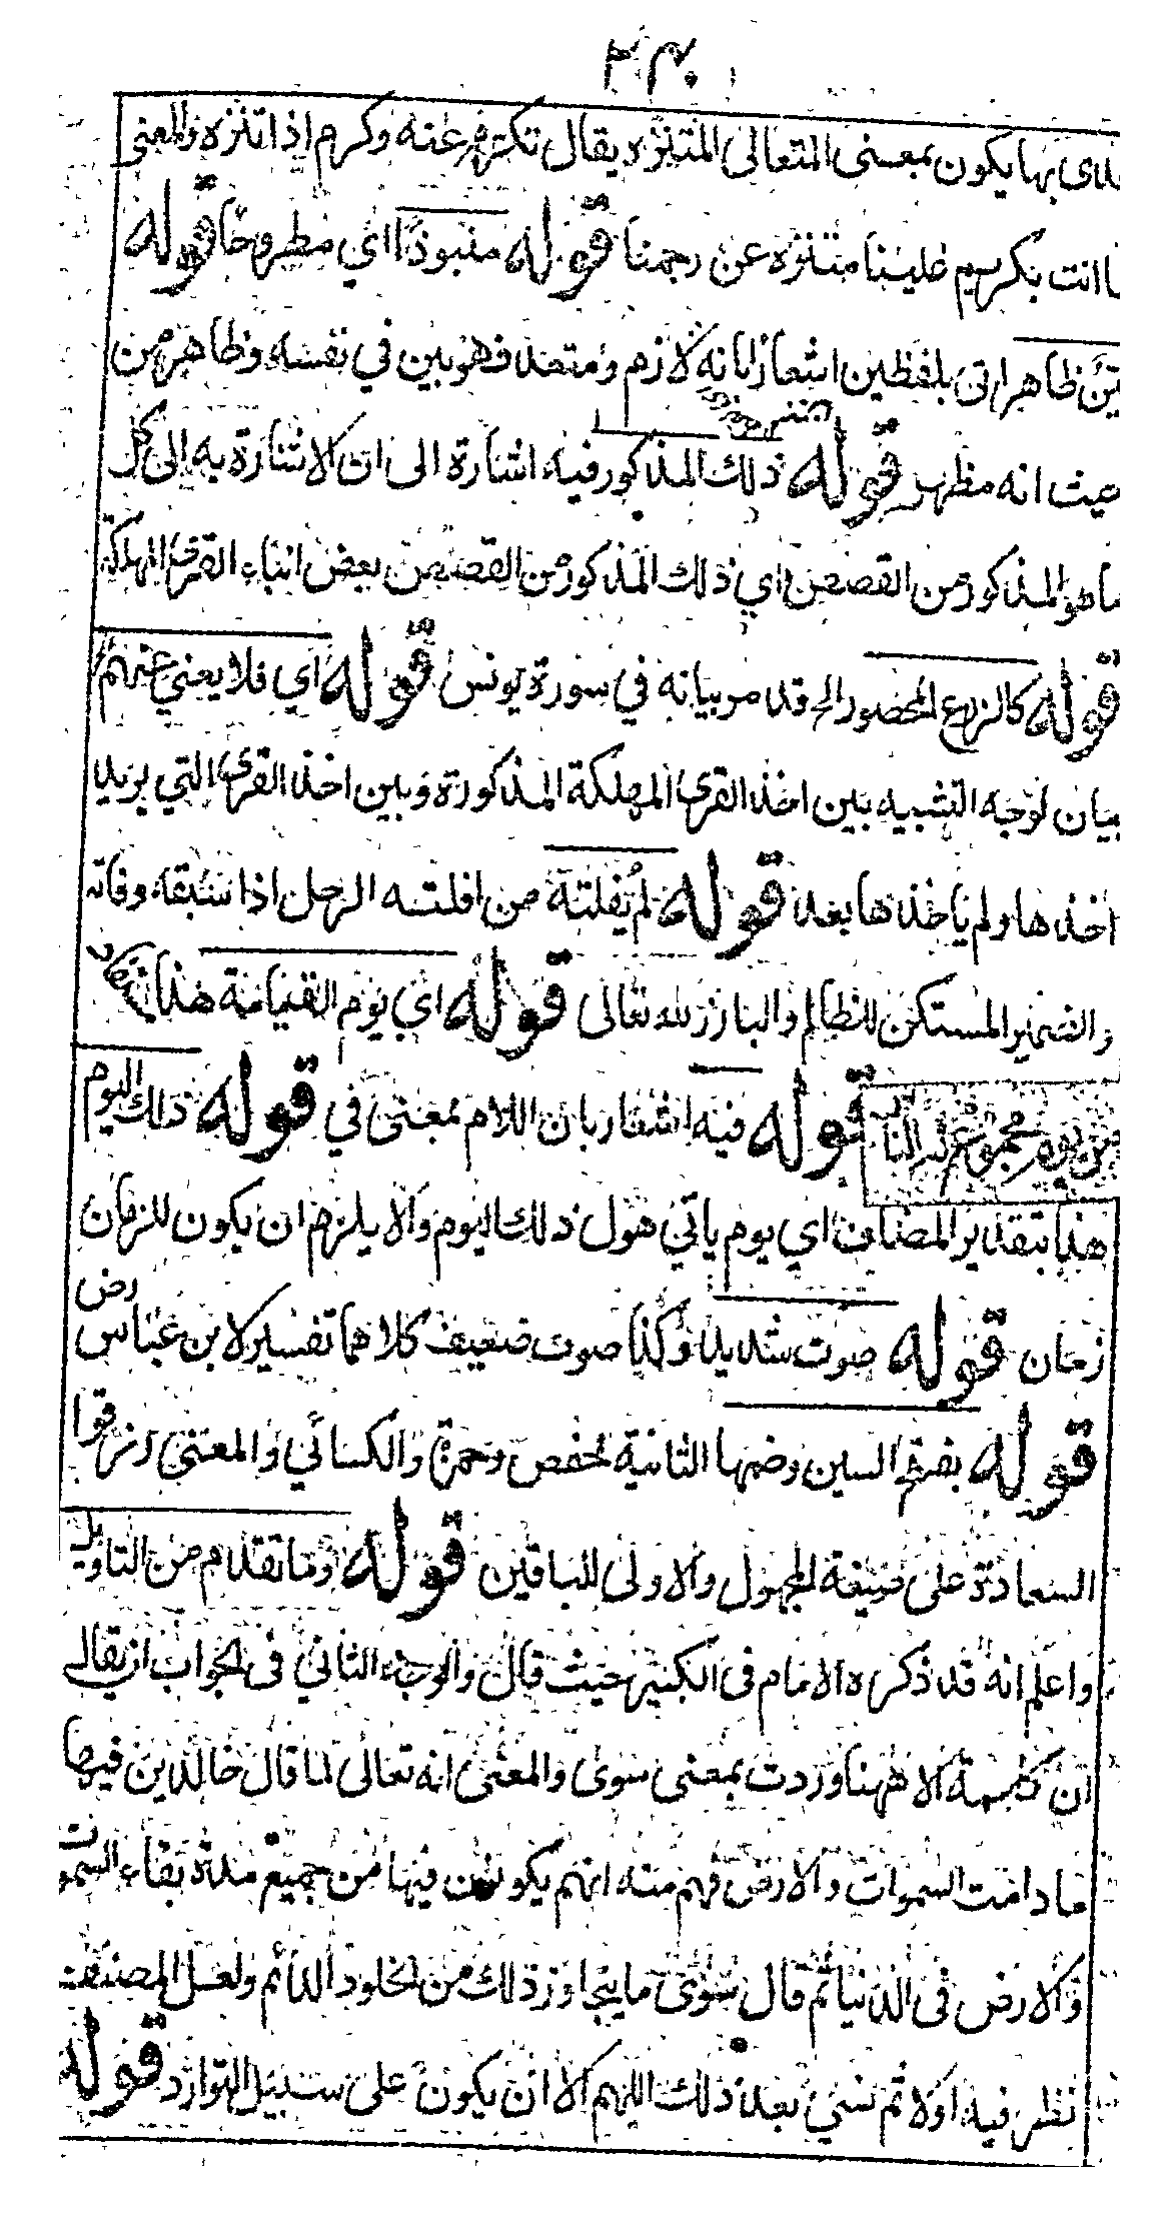 بها يكون بمعنى المتعالى المتنزه يقال تكرم عنه وكرم اذا تنزه والمعنى
انت بكريم علينا متنزه عن رجمنا قوله منبوذا اي مطروحا قوله
ظاهر اتى بلفظين اشعارا بانه لازم ومتعد فهو بين في نفسه وظاهر من
حيث انه مظهر قوله ذلك المذكور فيه اشارة الى ان الاشارة به الى كل
ما هو المذكور من القصص اي ذلك المذكور من القصص بعض انباء القرى المهلكة
قوله كالزرع المحصود الخ قد مر بيانه في سورة يونس قوله اي فلا يعني عنهم
بيان لوجه التشبيه بين اخذ القرى المهلكة المذكورة وبين اخذ القرى التي يريد
اخذها ولم ياخذها بعد قوله لم يفلته من افلته الرجل اذا سبقه وفاته
والضمير المستكن للظالم والبارز لله تعالى قوله اي يوم القيامة هذا
قوله فيه اشعار بان اللام بمعنى في قوله ذلك اليوم
هذا بتقدير المضاف اي يوم ياتي هول ذلك اليوم والا يلزم ان يكون للزمان
زمان قوله صوت شديد وكذا صوت ضعيف كلاهما تفسير لابن عباس رض
قوله بفتح السين وضمها الثانية لحفص وحمزة والكسائي والمعنى رزقوا
السعادة على صيغة المجهول والاولى للباقين قوله وما تقدم من التاويل
واعلم انه قد ذكره الامام فى الكبير حيث قال والوجه الثاني فى الجواب ان يقال
ان كلمة الا ههنا وردت بمعنى سوى والمعنى انه تعالى لما قال خالدين فيها
ما دامت السموات والارض فهم منه انهم يكونون فيها من جميع مدة بقاء السموت
والارض فى الدنيا ثم قال سوى ما يتجاوز ذلك من الخلود الدائم ولعل المصنف
نظر فيه اولا ثم نسي بعد ذلك اللهم الا ان يكون على سبيل التوارد قوله